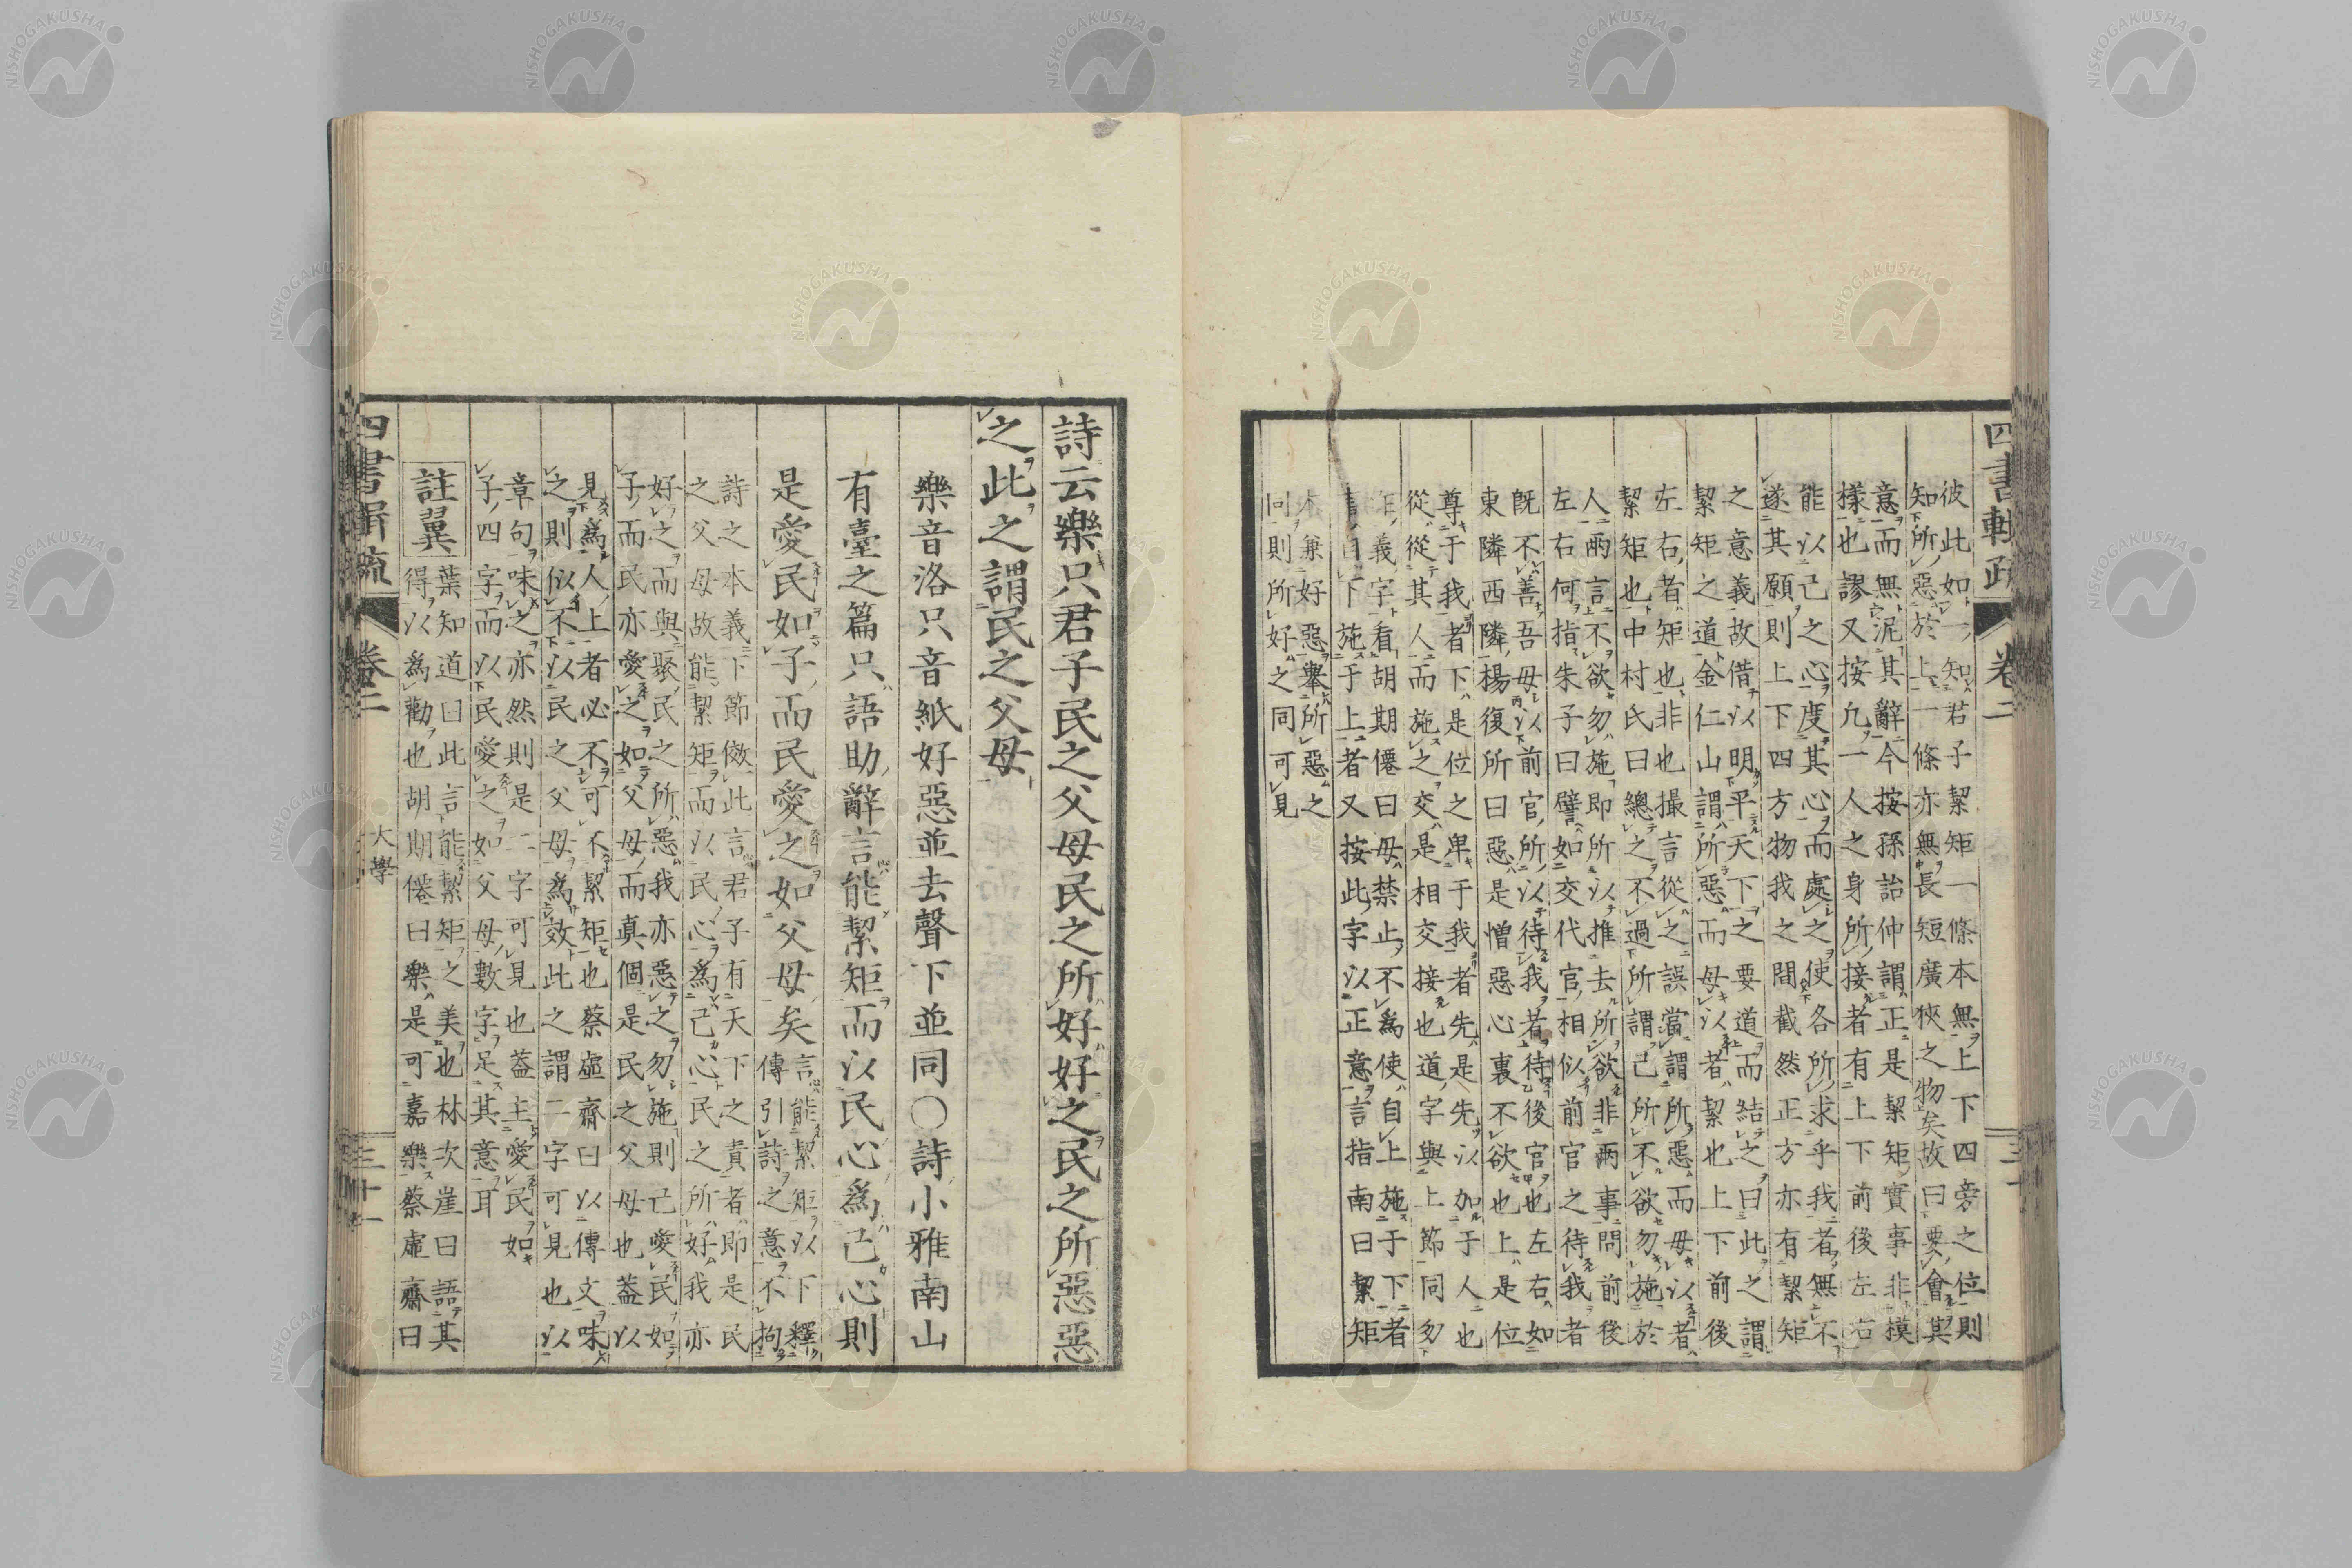 彼此如一知君子絜矩一條本無上下四旁之位則
知所惡於上一條亦無長短廣狹之物矣故曰要會其
意而無泥其辭今按孫詒仲謂正是絜矩實事非摸
樣也謬又按凢一人之身所接者有上下前後左右
能以己之心度其心而處之使各所求乎我者無不
遂其願則上下四方物我之間截然正方亦有絜矩
之意義故借以明平天下之要道而結之曰此之謂
絜矩之道金仁山謂所惡而毋以者絜也上下前後
左右者矩也非也撮言從之誤當謂所惡而毋以者
絜矩也中村氏曰總之不過所謂己所不欲勿施於
人兩言不欲勿施即所以推去所欲非兩事問前後
左右何指朱子曰譬如交代官相似前官之待我者
既不善吾毋以前官所以待我者待後官也左右如
東隣西隣楊復所曰惡是憎惡心裏不欲也上是位
尊于我者下是位之卑于我者先是先以加于人也
從從其人而施之交是相交接也道字與上節同勿
作義字看胡期僊曰毋禁止不為使自上施于下者
言自下施于上者又按此字以正意言指南曰絜矩
不兼好惡舉所惡之
同則所好之同可見
四書輯疏 卷二
詩云樂只君子民之父母民之所好好之民之所惡惡
之此之謂民之父母
樂音洛只音紙好惡並去聲下並同○詩小雅南山
有臺之篇只語助辭言能絜矩而以民心為己心則
是愛民如子而民愛之如父母矣
言能絜矩以下釋
傳引詩之意不拘
詩之本義下節倣此言君子有天下之責者即是民
之父母故能絜矩而以民心為己心民之所好我亦
好之而與聚民之所惡我亦惡之勿施則已愛民如
子而民亦愛之如父母而真個是民之父母也蓋以
見為人上者必不可不絜矩也蔡虛齋曰以傳文味
之則似不以民之父母為效此之謂二字可見也以
章句味之亦然則是一字可見也蓋主愛民如
子四字而以民愛之如父母數字足其意耳
註翼
葉知道曰此言能絜矩之美也林次崖曰語其
得以為勸也胡期僊曰樂是可嘉樂蔡虛齋曰
四書輯疏 卷二 大學 三十一